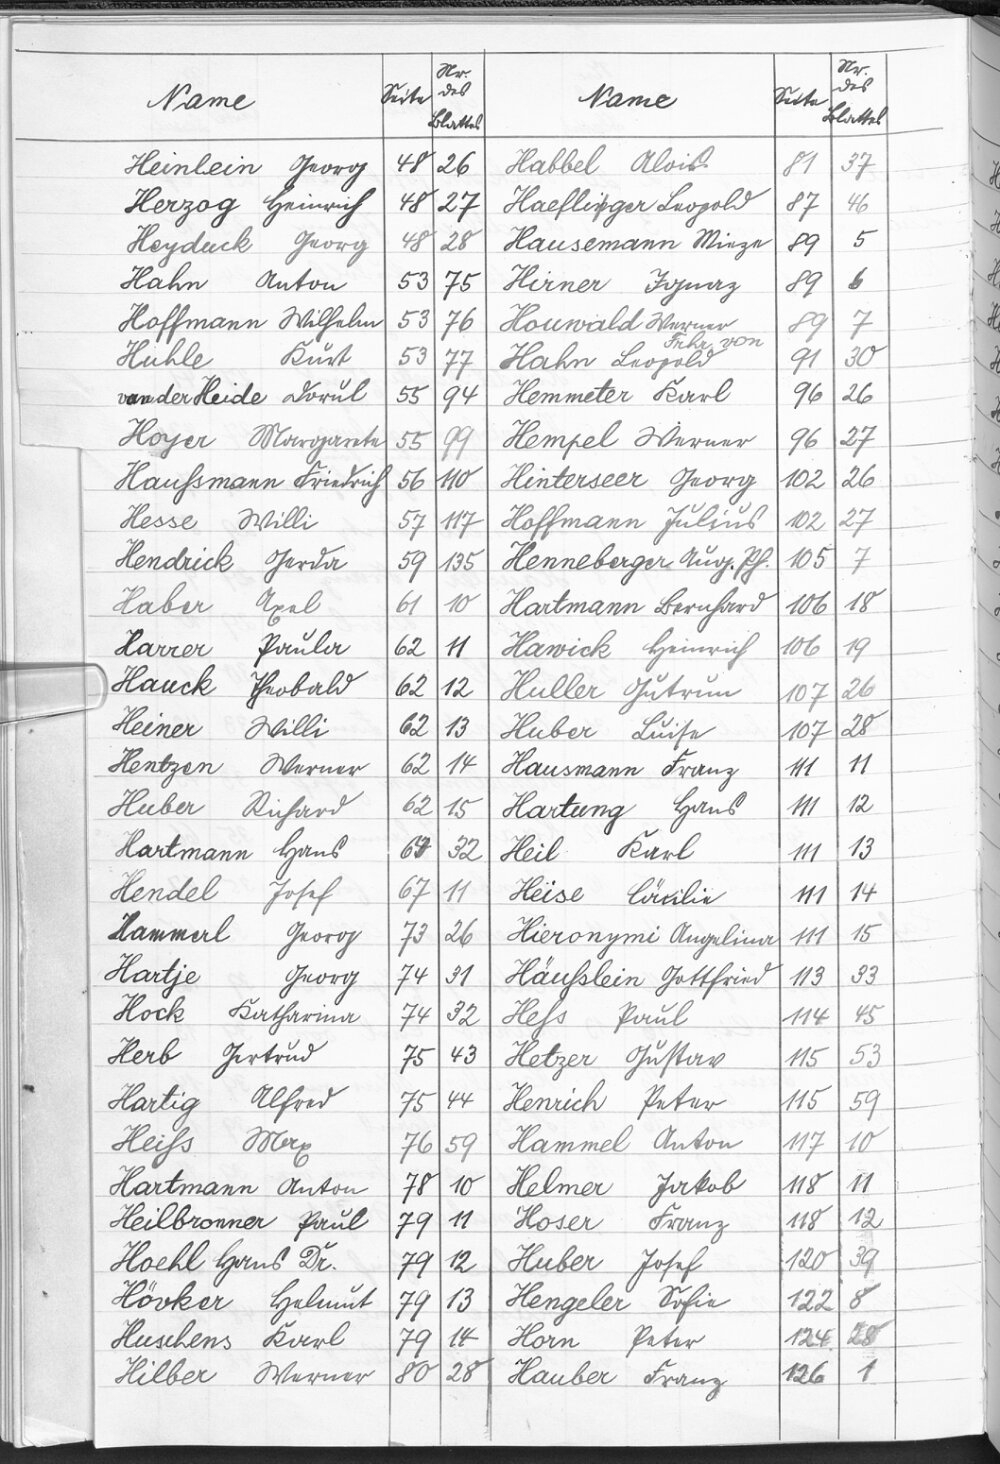 Name Seite Nr. des Blattes
Heinlein Georg 48 26
Herzog Heinrich 48 27
Heyduck Georg 48 28
Hahn Anton 53 75
Hoffmann Wilhelm 53 76
Huhle Kurt 53 77
van der Heide Dorul 55 94
Hoyer Margarete 55 99
Haußmann Friedrich 56 110
Hesse Willi 57 117
Hendrick Gerda 59 135
Haber Axel 61 10
Harrer Paula 62 11
Hauck Theobald 62 12
Heiner Willi 62 13
Hentzen Werner 62 14
Huber Richard 62 15
Hartmann Hans 32
Hendel Josef 67 11
Hammerl Georg 73 26
Hartje Georg 74 31
Hock Katharina 74 32
Herb Gertrud 75 43
Hartig Alfred 75 44
Heiß Max 76 59
Hartmann Anton 78 10
Heilbronner Paul 79 11
Hoehl Hans Dr. 79 12
Hövker Helmut 79 13
Huschens Karl 79 14
Hilber Werner 80 28
Name Seite Nr. des Blattes
Habbel Alois 81 37
Haefliger Leopold 87 46
Hausemann Mieze 89 5
Hirner Ignaz 89 6
Houwald Werner Frhr. von 89 7
Hahn Leopold 91 30
Hemmeter Karl 96 26
Hempel Werner 96 27
Hinterseer Georg 102 26
Hoffmann Julius 102 27
Henneberger Aug. Ph. 105 7
Hartmann Bernhard 106 18
Hawick Heinrich 106 19
Huller Gutrun 107 26
Huber Luise 107 28
Hausmann Franz 111 11
Hartung Hans 111 12
Heil Karl 111 13
Heise Cäcilie 111 14
Hieronymi Angelina 111 15
Häußlein Gottfried 113 33
Heß Paul 114 45
Hetzer Gustav 115 53
Henrich Peter 115 59
Hammel Anton 117 10
Helmer Jakob 118 11
Hoser Franz 118 12
Huber Josef 120 39
Hengeler Sofie 122 8
Horn Peter 124 28
Hauber Franz 126 1